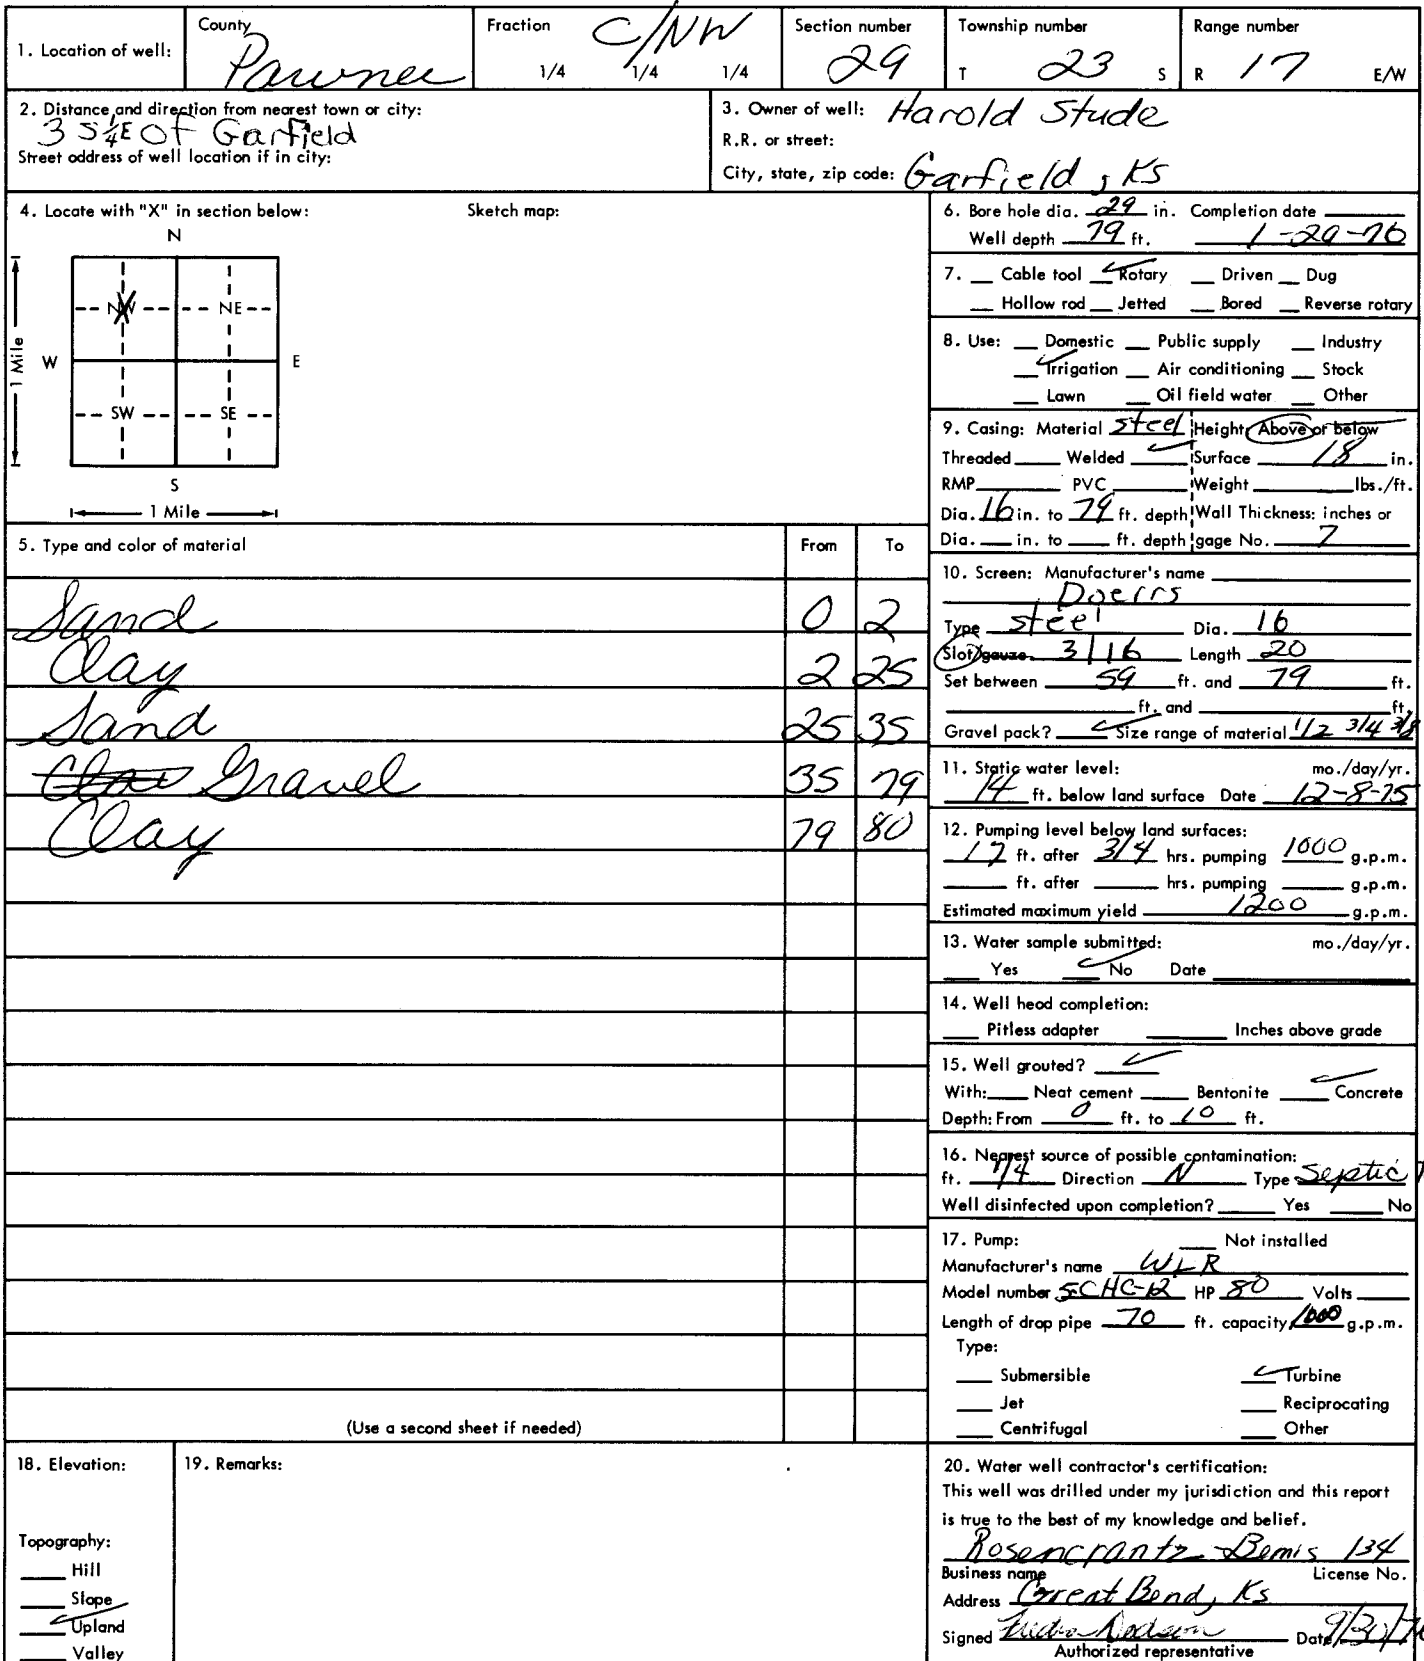 1. Location of well: County Pawnee Fraction C/NW 1/4 1/4 1/4 Section number 29 Township number T 23 S Range number R 17 E/W
2. Distance and direction from nearest town or city:
3 S 1/4 E Of Garfield
Street address of well location if in city:
3. Owner of well: Harold Stude
R.R. or street:
City, state, zip code: Garfield, Ks
4. Locate with "X" in section below: Sketch map:
N
NW NE
W E
SW SE
S
1 Mile
1 Mile
5. Type and color of material From To
Sand 0 2
Clay 2 25
Sand 25 35
Gravel 35 79
Clay 79 80
(Use a second sheet if needed)
6. Bore hole dia. 29 in. Completion date
Well depth 79 ft. 1-29-76
7. Cable tool ✓ Rotary Driven Dug
Hollow rod Jetted Bored Reverse rotary
8. Use: Domestic Public supply Industry
✓ Irrigation Air conditioning Stock
Lawn Oil field water Other
9. Casing: Material steel Height: Above or below
Threaded Welded ✓ Surface 18 in.
RMP PVC Weight lbs./ft.
Dia. 16 in. to 79 ft. depth Wall Thickness: inches or
Dia. in. to ft. depth gage No. 7
10. Screen: Manufacturer's name
Doerrs
Type steel Dia. 16
Slot/gauze 3/16 Length 20
Set between 59 ft. and 79 ft.
ft. and ft.
Gravel pack? ✓ Size range of material 1/2 3/4 3/8
11. Static water level: mo./day/yr.
14 ft. below land surface Date 12-8-75
12. Pumping level below land surfaces:
17 ft. after 3/4 hrs. pumping 1000 g.p.m.
ft. after hrs. pumping g.p.m.
Estimated maximum yield 1200 g.p.m.
13. Water sample submitted: mo./day/yr.
Yes ✓ No Date
14. Well head completion:
Pitless adapter Inches above grade
15. Well grouted? ✓
With: Neat cement Bentonite ✓ Concrete
Depth: From 0 ft. to 10 ft.
16. Nearest source of possible contamination:
ft. 1/4 Direction N Type Septic
Well disinfected upon completion? Yes No
17. Pump: Not installed
Manufacturer's name WLR
Model number HP 80 Volts
Length of drop pipe 70 ft. capacity 1000 g.p.m.
Type:
Submersible ✓ Turbine
Jet Reciprocating
Centrifugal Other
18. Elevation:
Topography:
Hill
Slope
✓ Upland
Valley
19. Remarks:
20. Water well contractor's certification:
This well was drilled under my jurisdiction and this report
is true to the best of my knowledge and belief.
Rosencrantz-Bemis 134
Business name License No.
Address Great Bend, Ks
Signed Date 9/30/76
Authorized representative